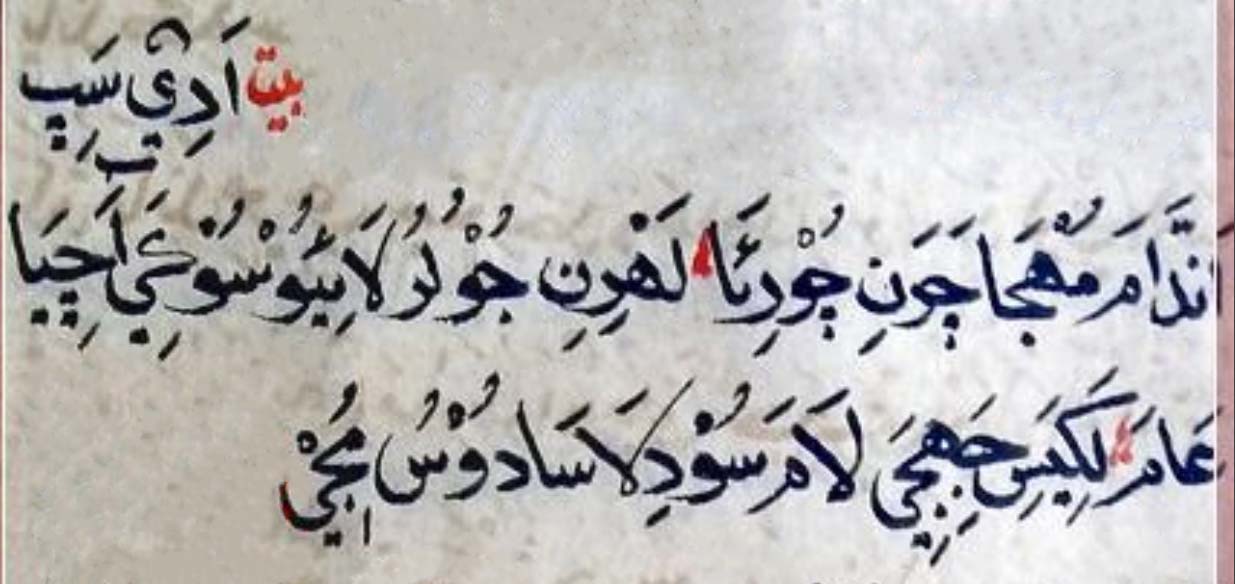 بيت اَدِيْ سَڀِ
اَندَامَ مُهْجَا چَوَنِ چُوْرِئَا لَهْرِنِ جُوْ لُرُ لَائِيَوُ سُوْ كِيَ اَچِيَا
عَامَ لَكِيَسِ جَهِجِيَ لَامَ سُوْدِلَا سَادُوْسُ مُجِيْ